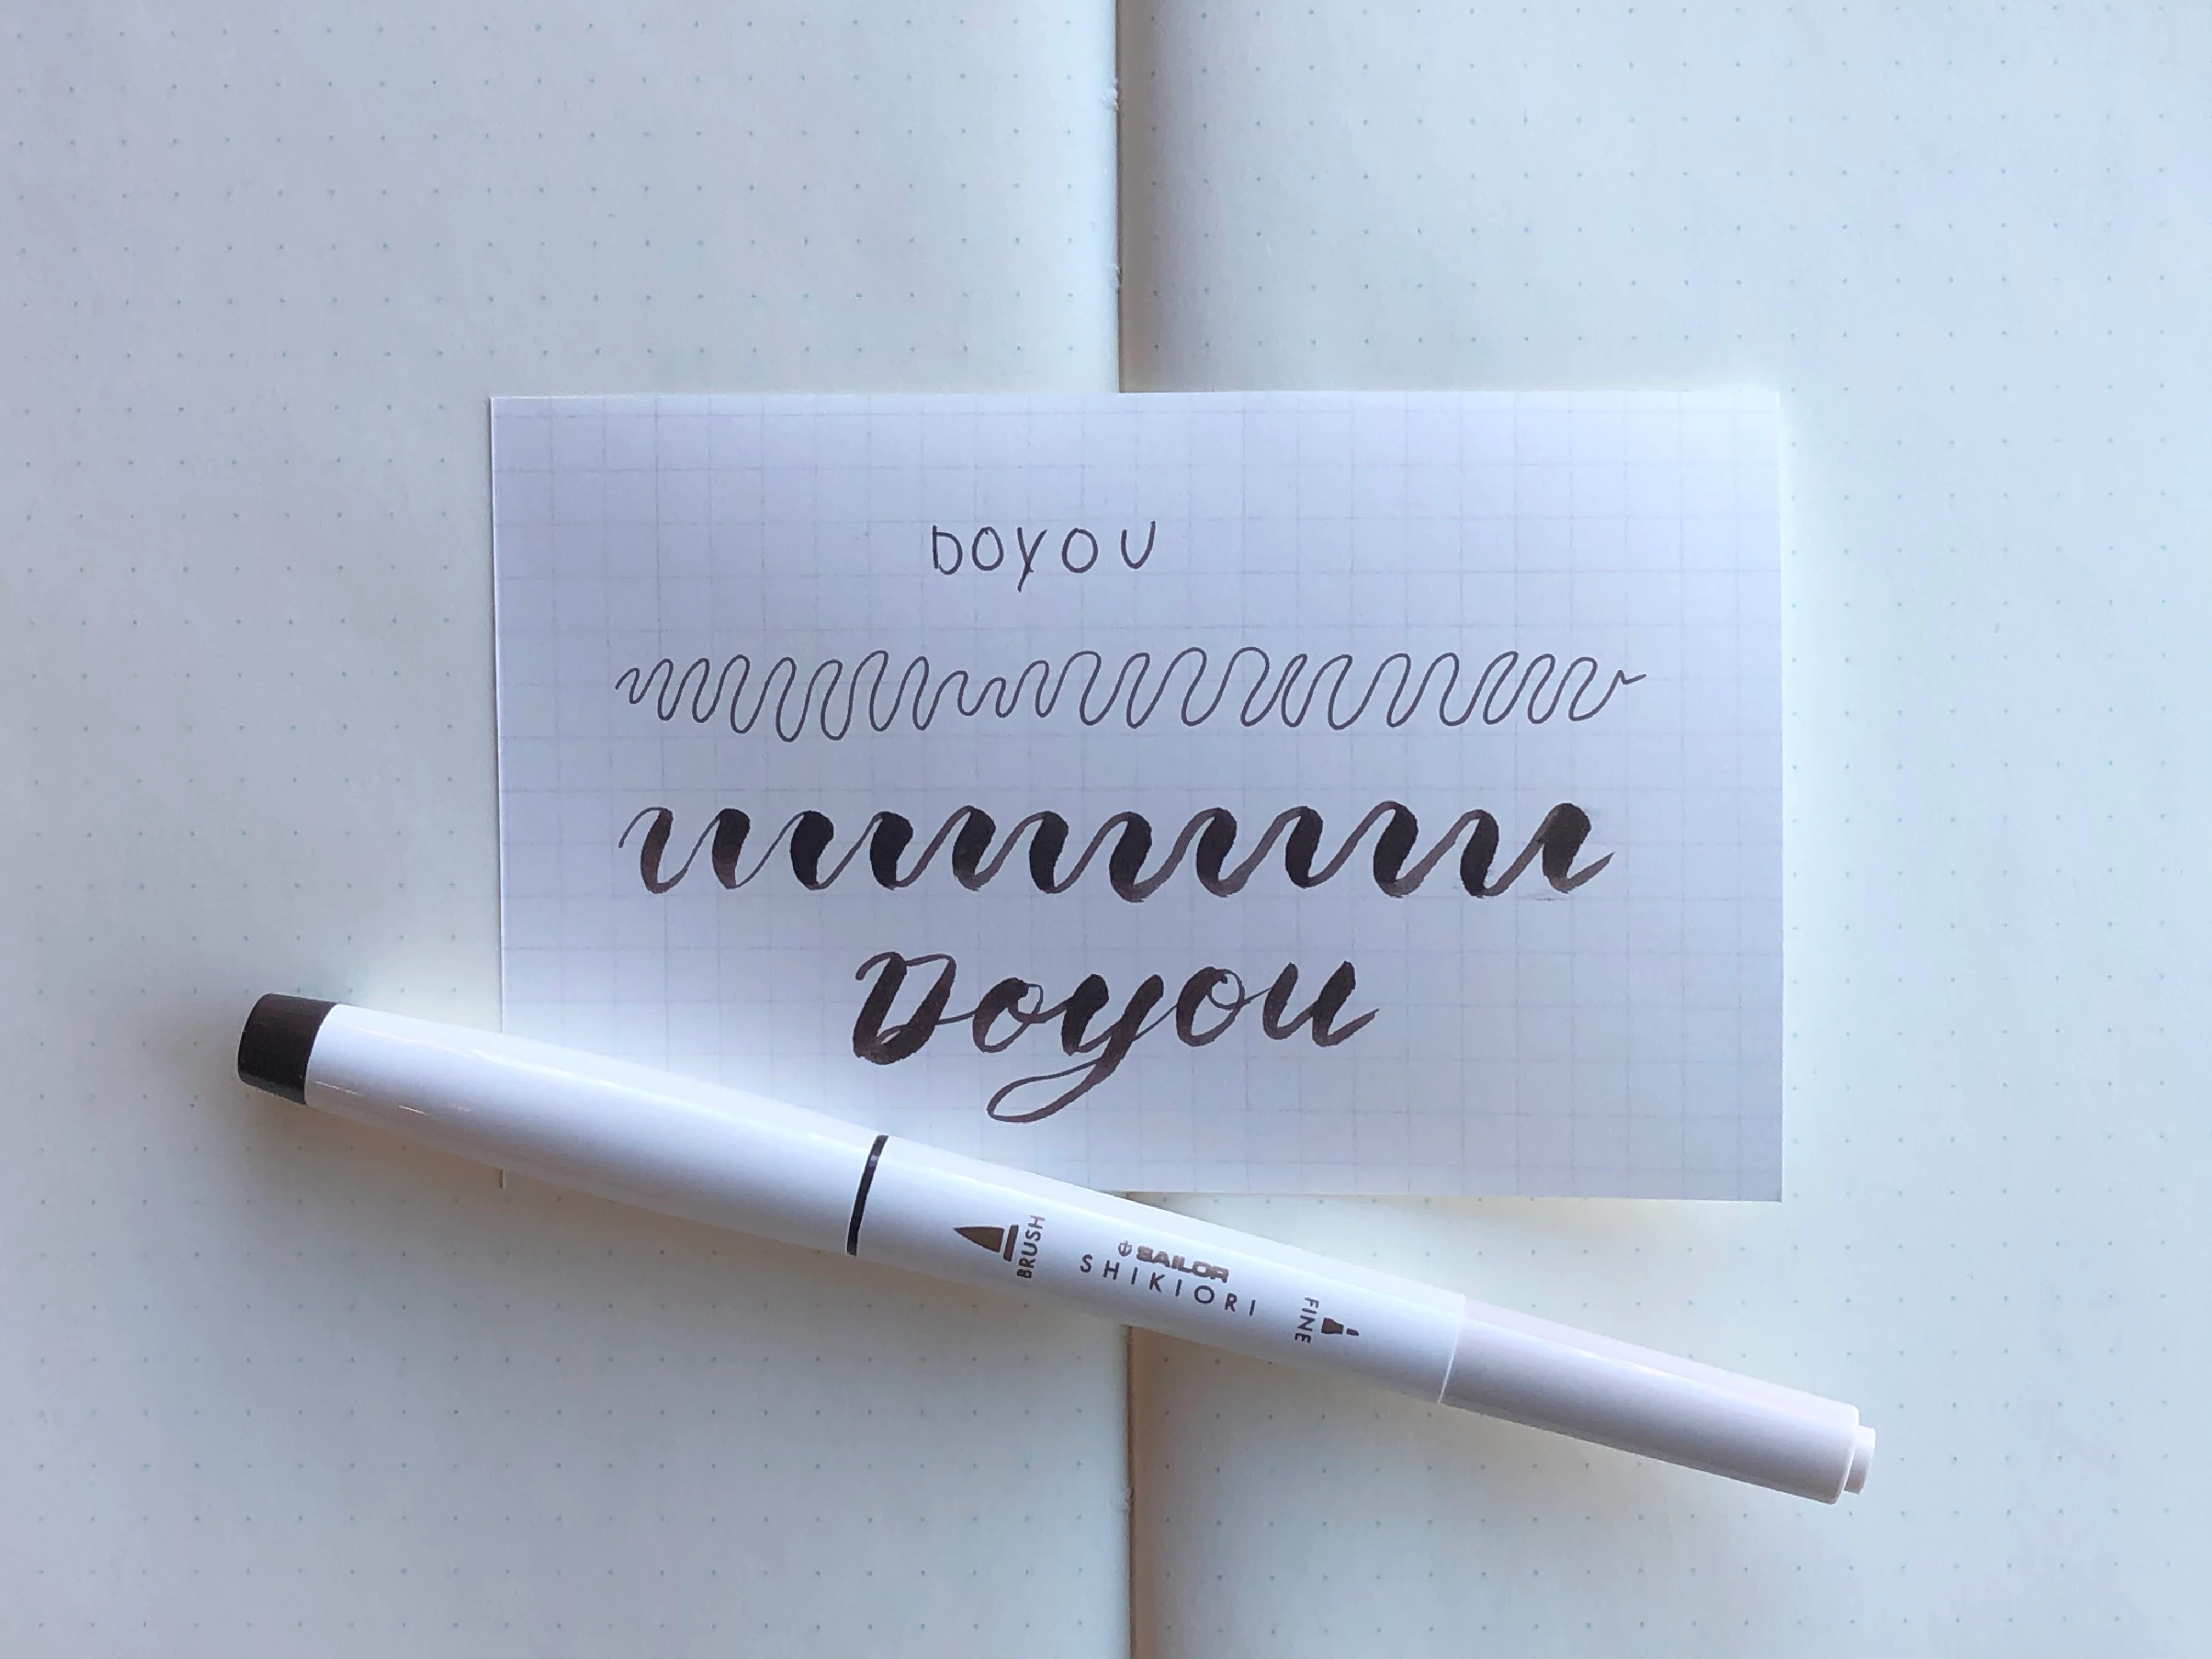 DOYOU
Doyou
BRUSH
SAILOR
SHIKIORI
FINE